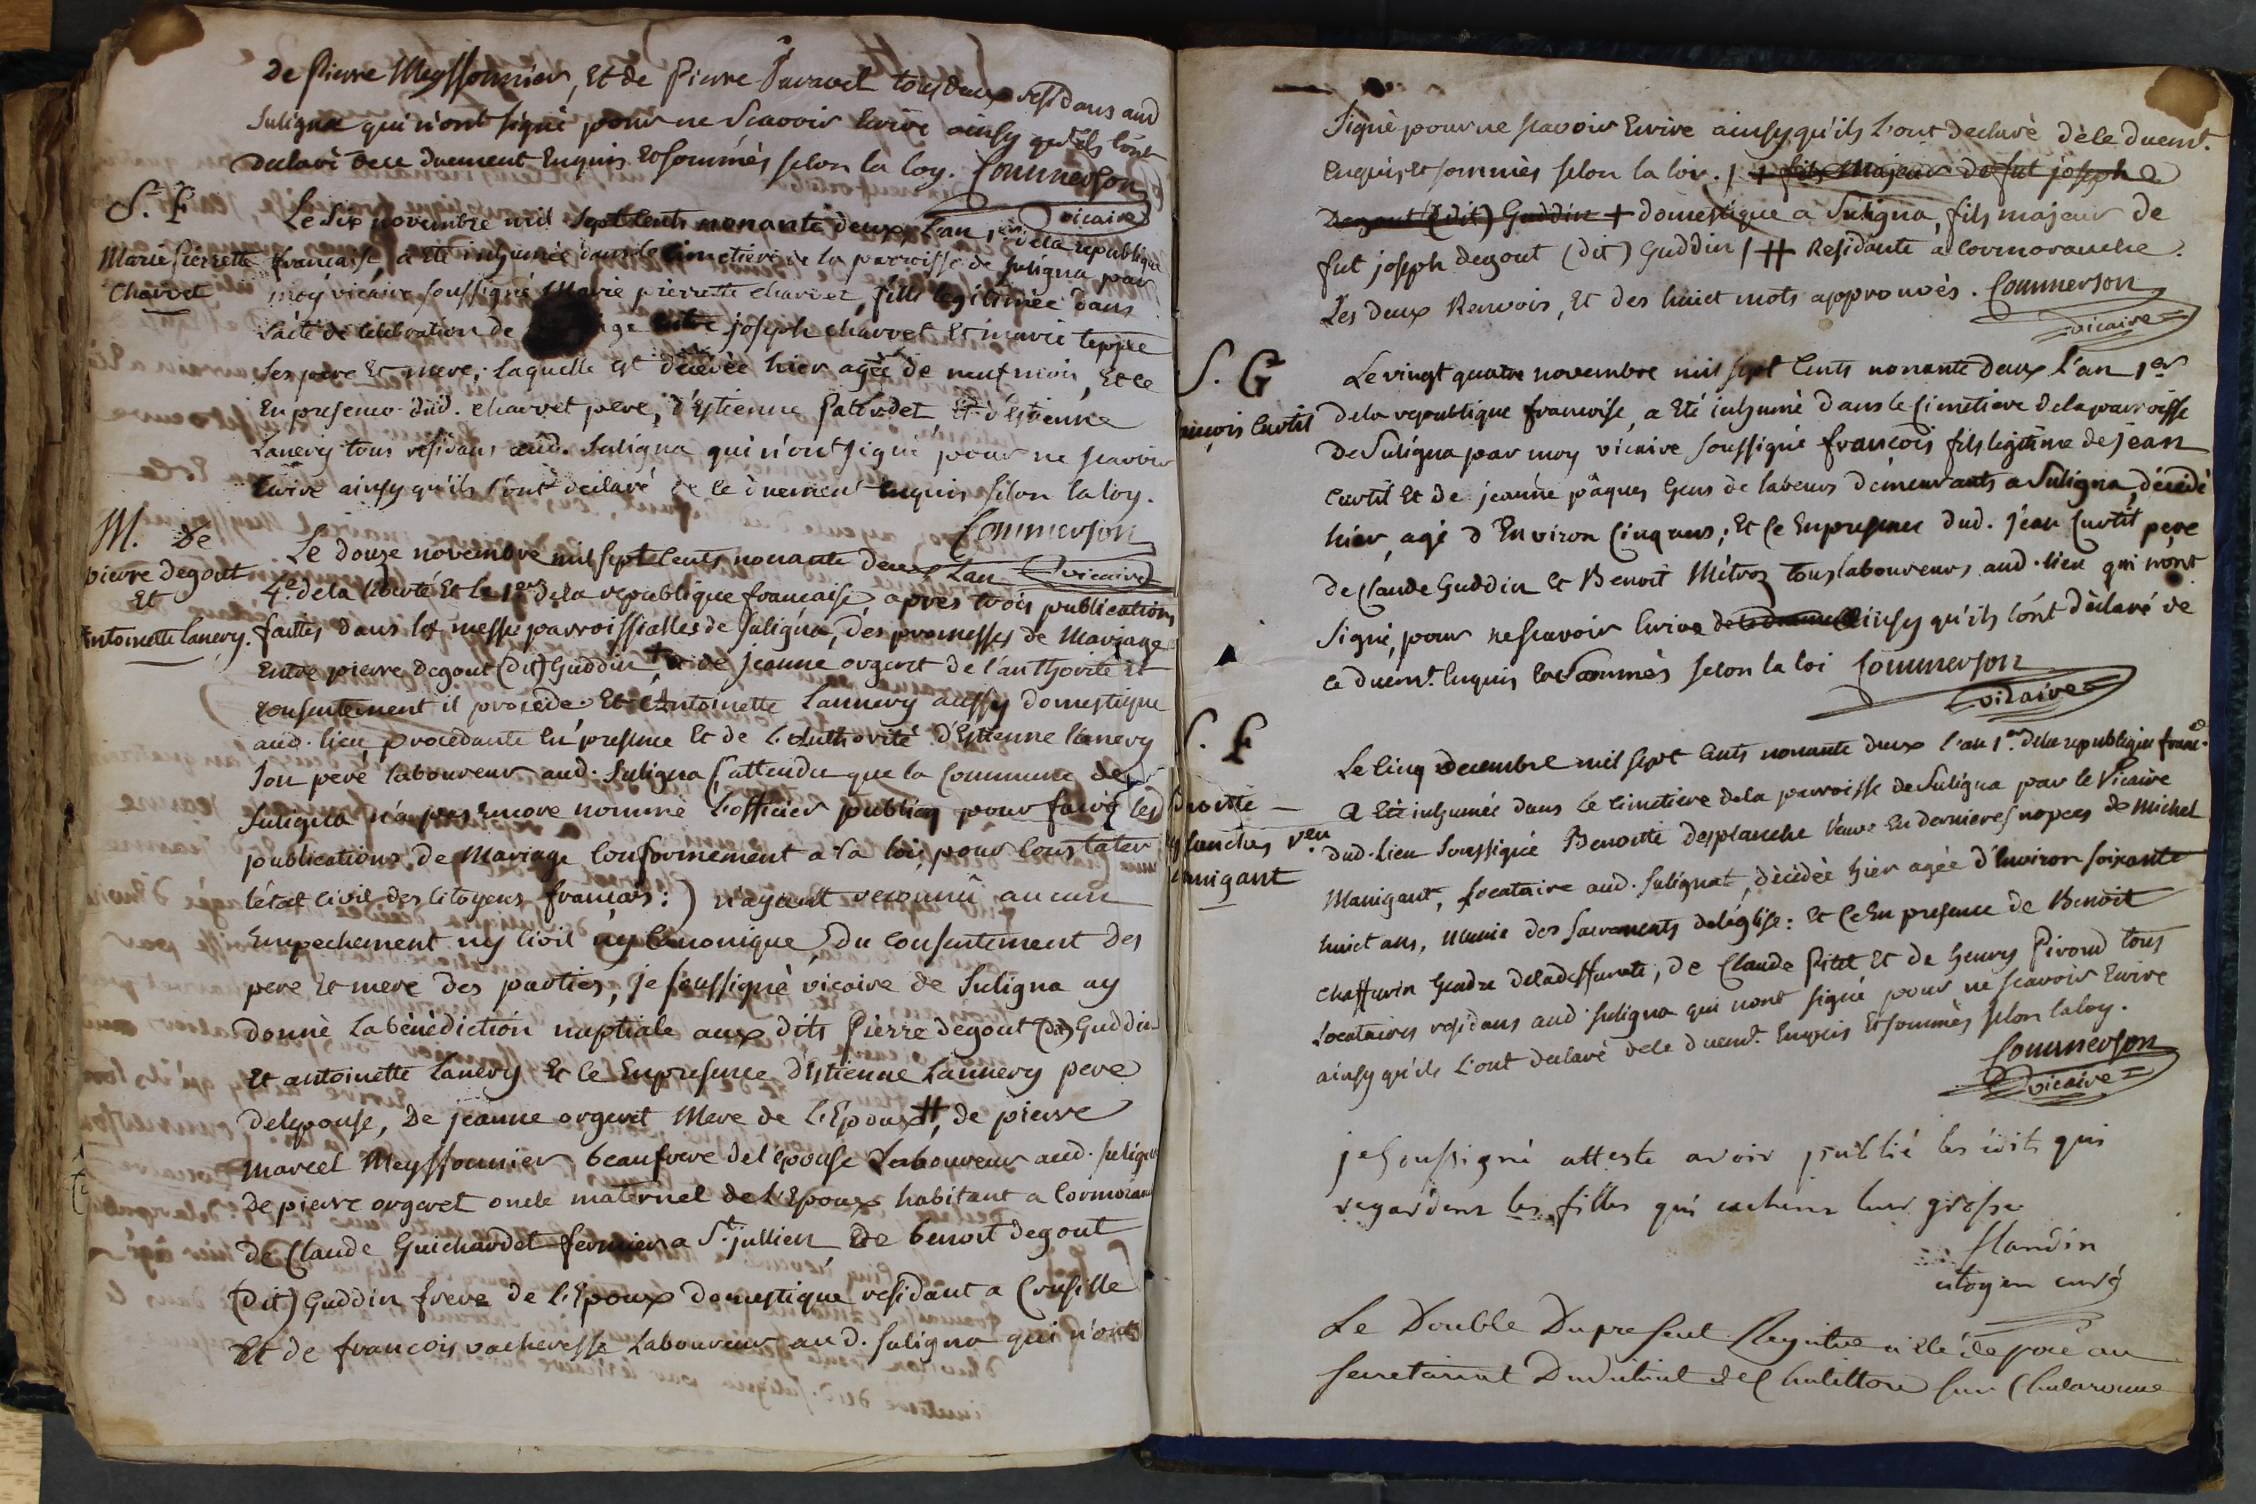 De Pierre Meyssonnier, Et de Pierre Paravel tous deux residans aud
Suligna qui n'ont signé pour ne Scavoir Ecrire ainsy qu'ils l'ont
declaré de ce duement Enquis Et sommés selon la loy. Commerson
vicaire
S. F
Marie Pierrette
Charvet
Le Six novembre mil Sept Cents nonante deux, L'an 1er de la republique
francaise, a Eté inhumée dans le Cimetiere de la parroisse de Suligna par
moy vicaire soussigné Marie pierrette charvet, fille legitimée dans
l'acte de Celebration de entre joseph charvet Et marie teppe
Ses pere Et mere; Laquelle est décédée hier agée de neuf mois, Et ce
En presence dud. charvet pere, d'Estienne Paludet, Et d'Estienne
Lanery tous residans aud. Suligna qui n'ont signé pour ne scavoir
Ecrire ainsy qu'ils l'ont déclaré de ce duement Enquis selon la loy.
Commerson
vicaire
M. de
pierre degout
Et
antoinette lanery.
Le douze novembre mil sept Cents nonante deux, L'an
4e. de la liberté Et le 1er de la republique francaise, apres trois publications
faittes dans les messes parroissialles de Suligna, des promesses de Mariage
Entre pierre degout (dit) Guddin + de jeanne orgeret de l'authorité Et
consentement il procede. Et Antoinette Lannery aussy domestique
aud. lieu, procedante En presence Et de L'Authorité d'Estienne lanery
Son pere laboureur aud. Suligna (attendu que la Commune de
Suligna n'a pas Encore nommé L'officier publicq pour faire les
publications de Mariage Conformement a la loi, pour Constater
l'état Civil des Citoyens francois:) n'ayant reconnu aucun
Empechement ny Civil ny Canonique, Du Consentement des
pere Et mere des parties, je soussigné vicaire de Suligna ay
donné La bénédiction nuptiale aux dits Pierre degout (dit) Guddin
Et antoinette lanery Et ce En presence d'Estienne Lannery pere
de lepouse, De jeanne orgeret Mere de L'Epoux ++, de pierre
marcel Meyssonnier beaufrere de l'epouse Laboureur aud. Suligna
de pierre orgeret oncle maternel de L'Epoux habitant a Cormoranche
de Claude Guichardet fermier a St. jullien, De benoit degout
(dit) Guddin frere de L'Epoux domestique residant a Crusille
Et de francois vacheresse Laboureur aud. Suligna qui n'ont
Signé pour ne scavoir Ecrire ainsy qu'ils L'ont declaré de ce duemt.
Enquis Et sommés selon la loi. / + fils Majeur de fut joseph
Degout (dit) Guddin + domestique a Suligna, fils majeur de
fut joseph degout (dit) Guddin / ++ Residante a Cormoranche.
Les deux Renvois, Et des huict mots approuvés. Commerson
vicaire
S. G
ancois Curtil
Le vingt quatre novembre mil sept Cents nonante deux l'an 1er
de la republique francoise, a Eté inhumé dans le Cimetiere de la parroisse
de Suligna par moy vicaire soussigné francois fils legitime de jean
Curtil Et de jeanne pâques Gens de labeurs demeurants a Suligna, décédé
hier, agé d'Environ Cinq ans; Et ce En presence dud. jean Curtil pere
de Claude Guddin Et Benoit Métroz tous laboureurs aud. lieu qui n'ont
Signé, pour ne scavoir Ecrire ainsy qu'ils l'ont déclaré de
ce duemt. Enquis Et Sommés selon la loi Commerson
vicaire
S. F
Benoitte
splanches veu
anigant
Le Cinq decembre mil sept Cents nonante deux l'an 1er de la republique franc.
a Eté inhumée dans le Cimetiere de la parroisse de Suligna par le Vicaire
dud. Lieu Soussigné Benoitte desplanche Veuve En dernieres nopces de Michel
Manigant, Locataire aud. Sulignat, décédée hier agée d'Environ soixante
huict ans, munie des Sacrements de léglise: Et ce En presence de Benoit
chaffurin Gendre de la deffunte, de Claude Pitet Et de henry Piroud tous
Locataires residans aud. Suligna qui nont signé pour ne scavoir Ecrire
ainsy qu'ils L'ont declaré de ce duemt. Enquis Et sommés selon la loy.
Commerson
vicaire
je soussigné atteste avoir publié les édits qui
regardent les filles qui cachent leur grosse
flandin
citoyen curé
Le Double Du present Registre a été déposé au
secretariat Du district de Chatillon sur Chalaronne